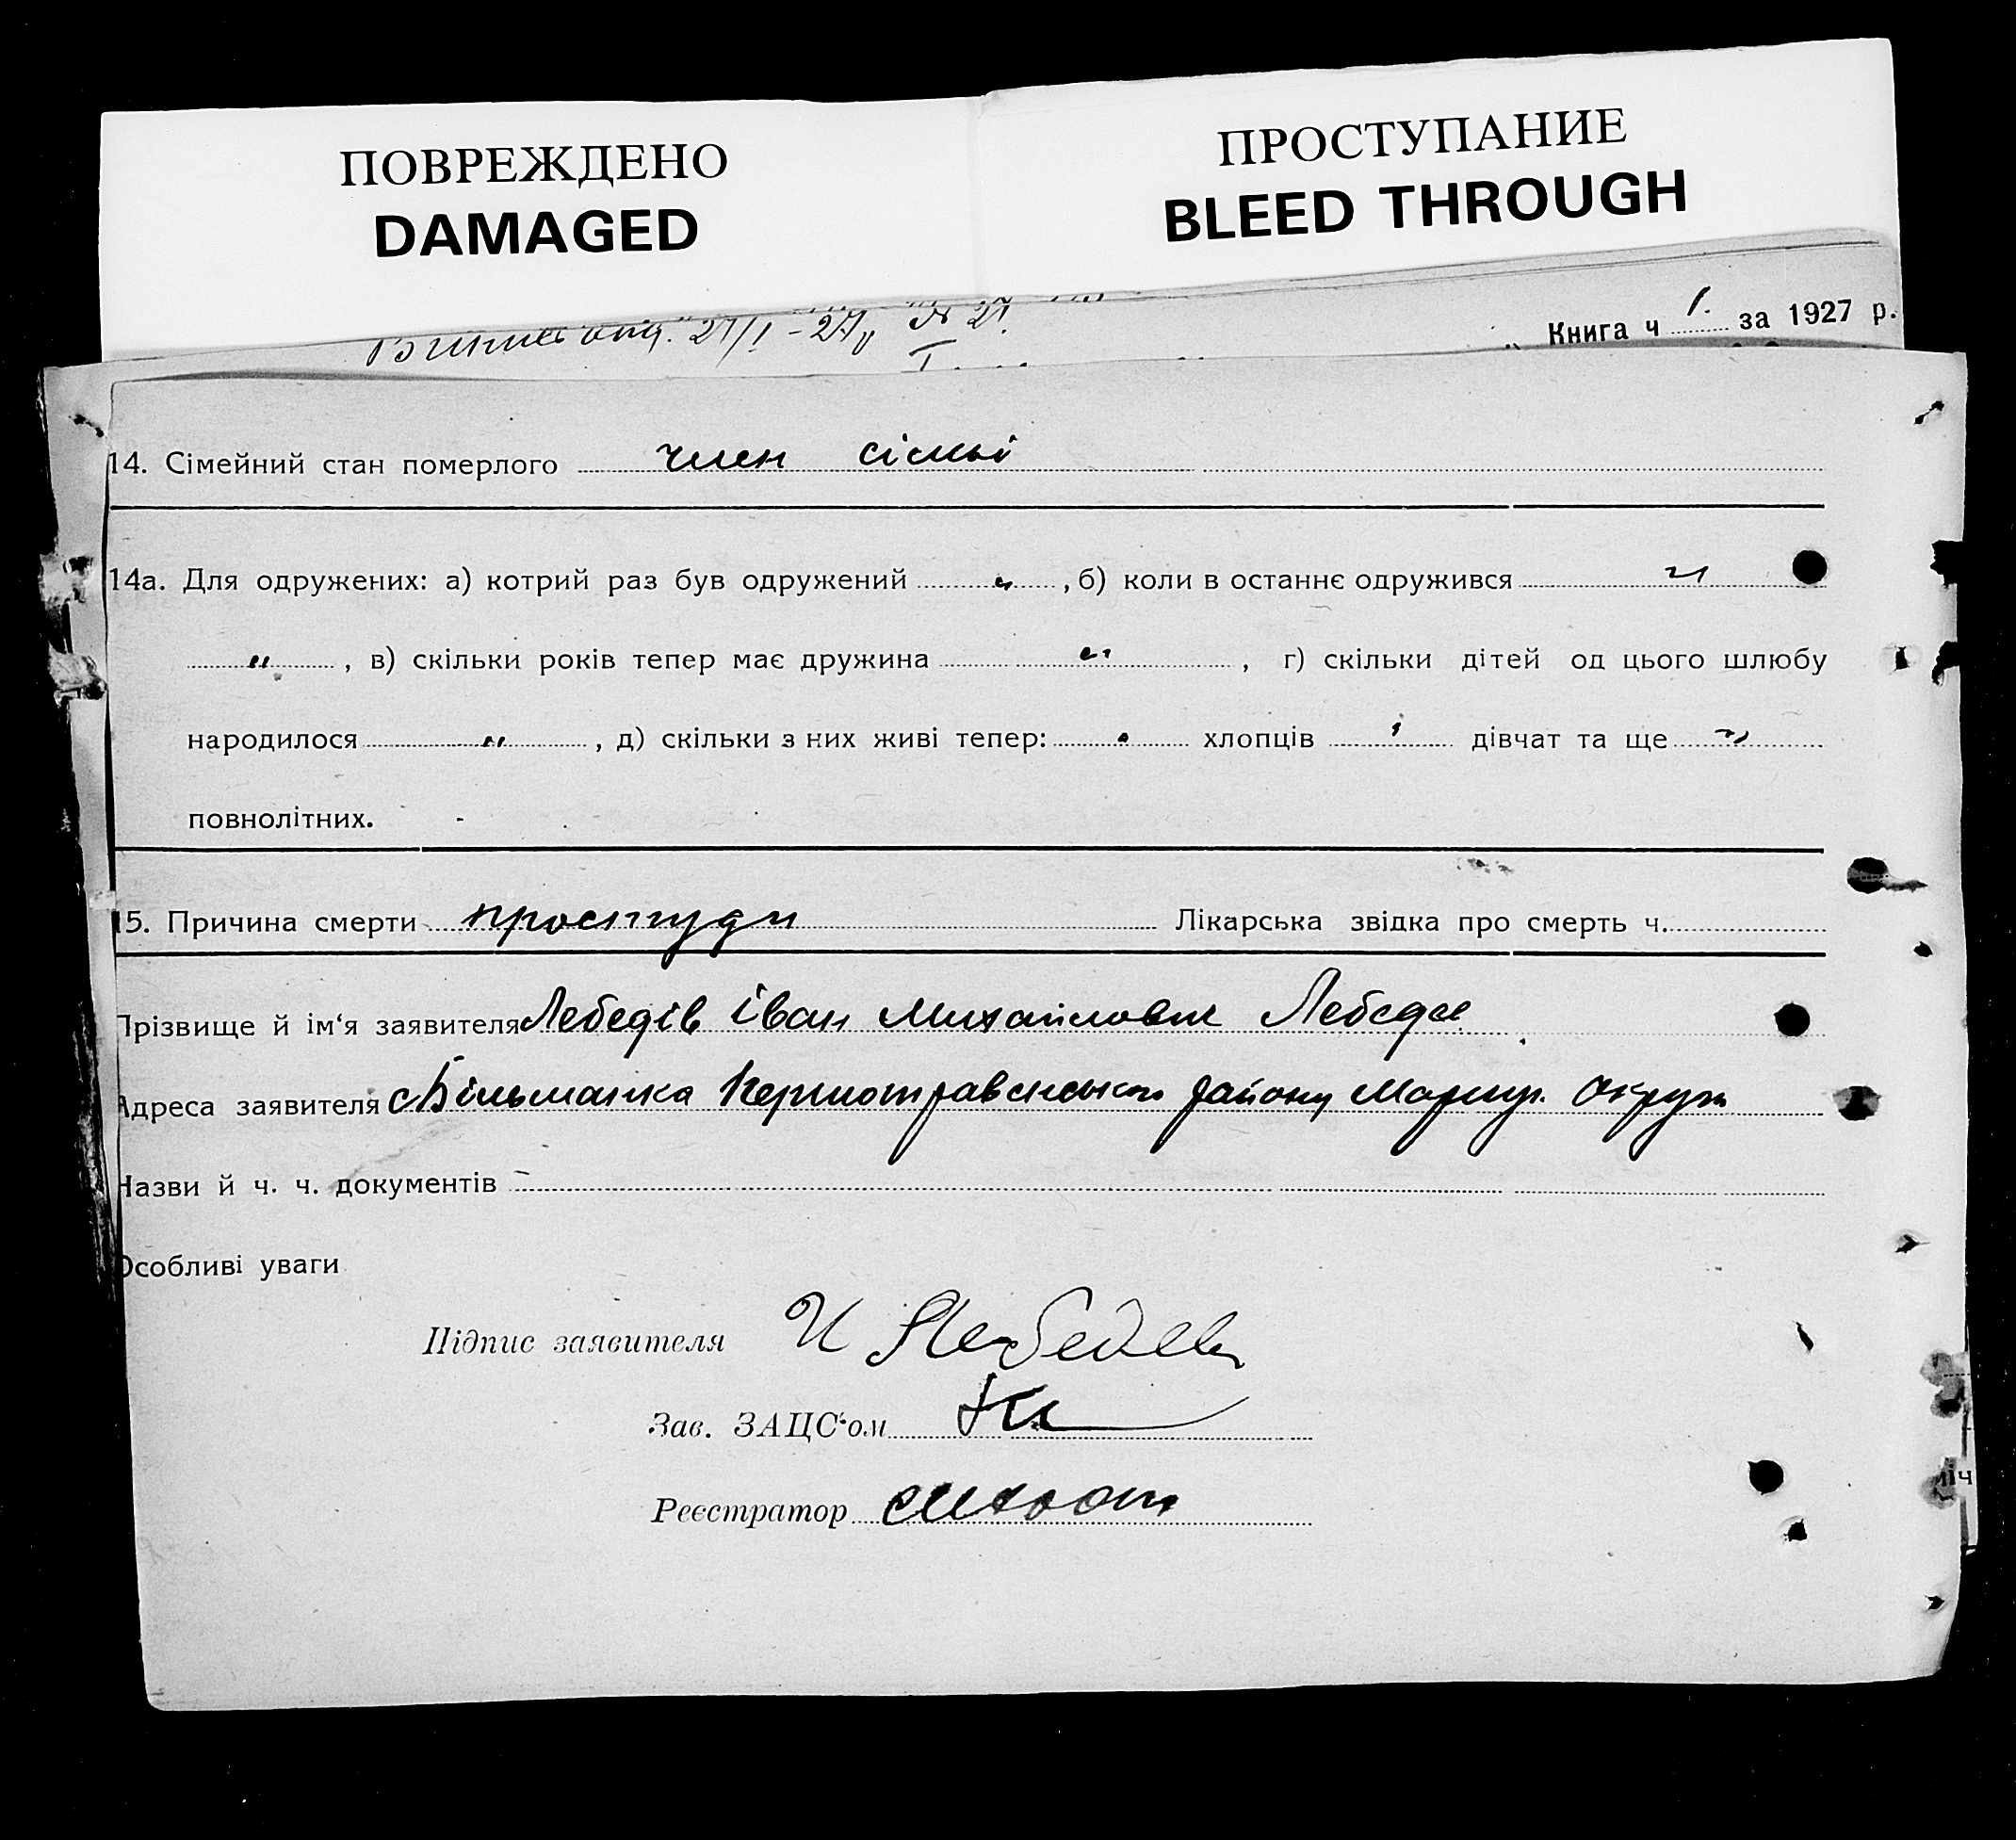 ПОВРЕЖДЕНО
DAMAGED
ПРОСТУПАНИЕ
BLEED THROUGH
21/I - 27 № 21.
Книга ч 1. за 1927 р.
14. Сімейний стан померлого член сімьї
14а. Для одружених: а) котрий раз був одружений „ , б) коли в останнє одружився „
„ , в) скільки років тепер має дружина „ , г) скільки дітей од цього шлюбу
народилося „ , д) скільки з них живі тепер: „ хлопців „ дівчат та ще „
повнолітних.
15. Причина смерти простуди Лікарська звідка про смерть ч.
Прізвище й ім‘я заявителя Лебедів Іван Михайлович
Адреса заявителя с Більманка району Маріуп. Округи
Назви й ч. ч. документів
Особливі уваги
Підпис заявителя И Лебедев
Зав. ЗАЦС‘ом
Реєстратор
іч